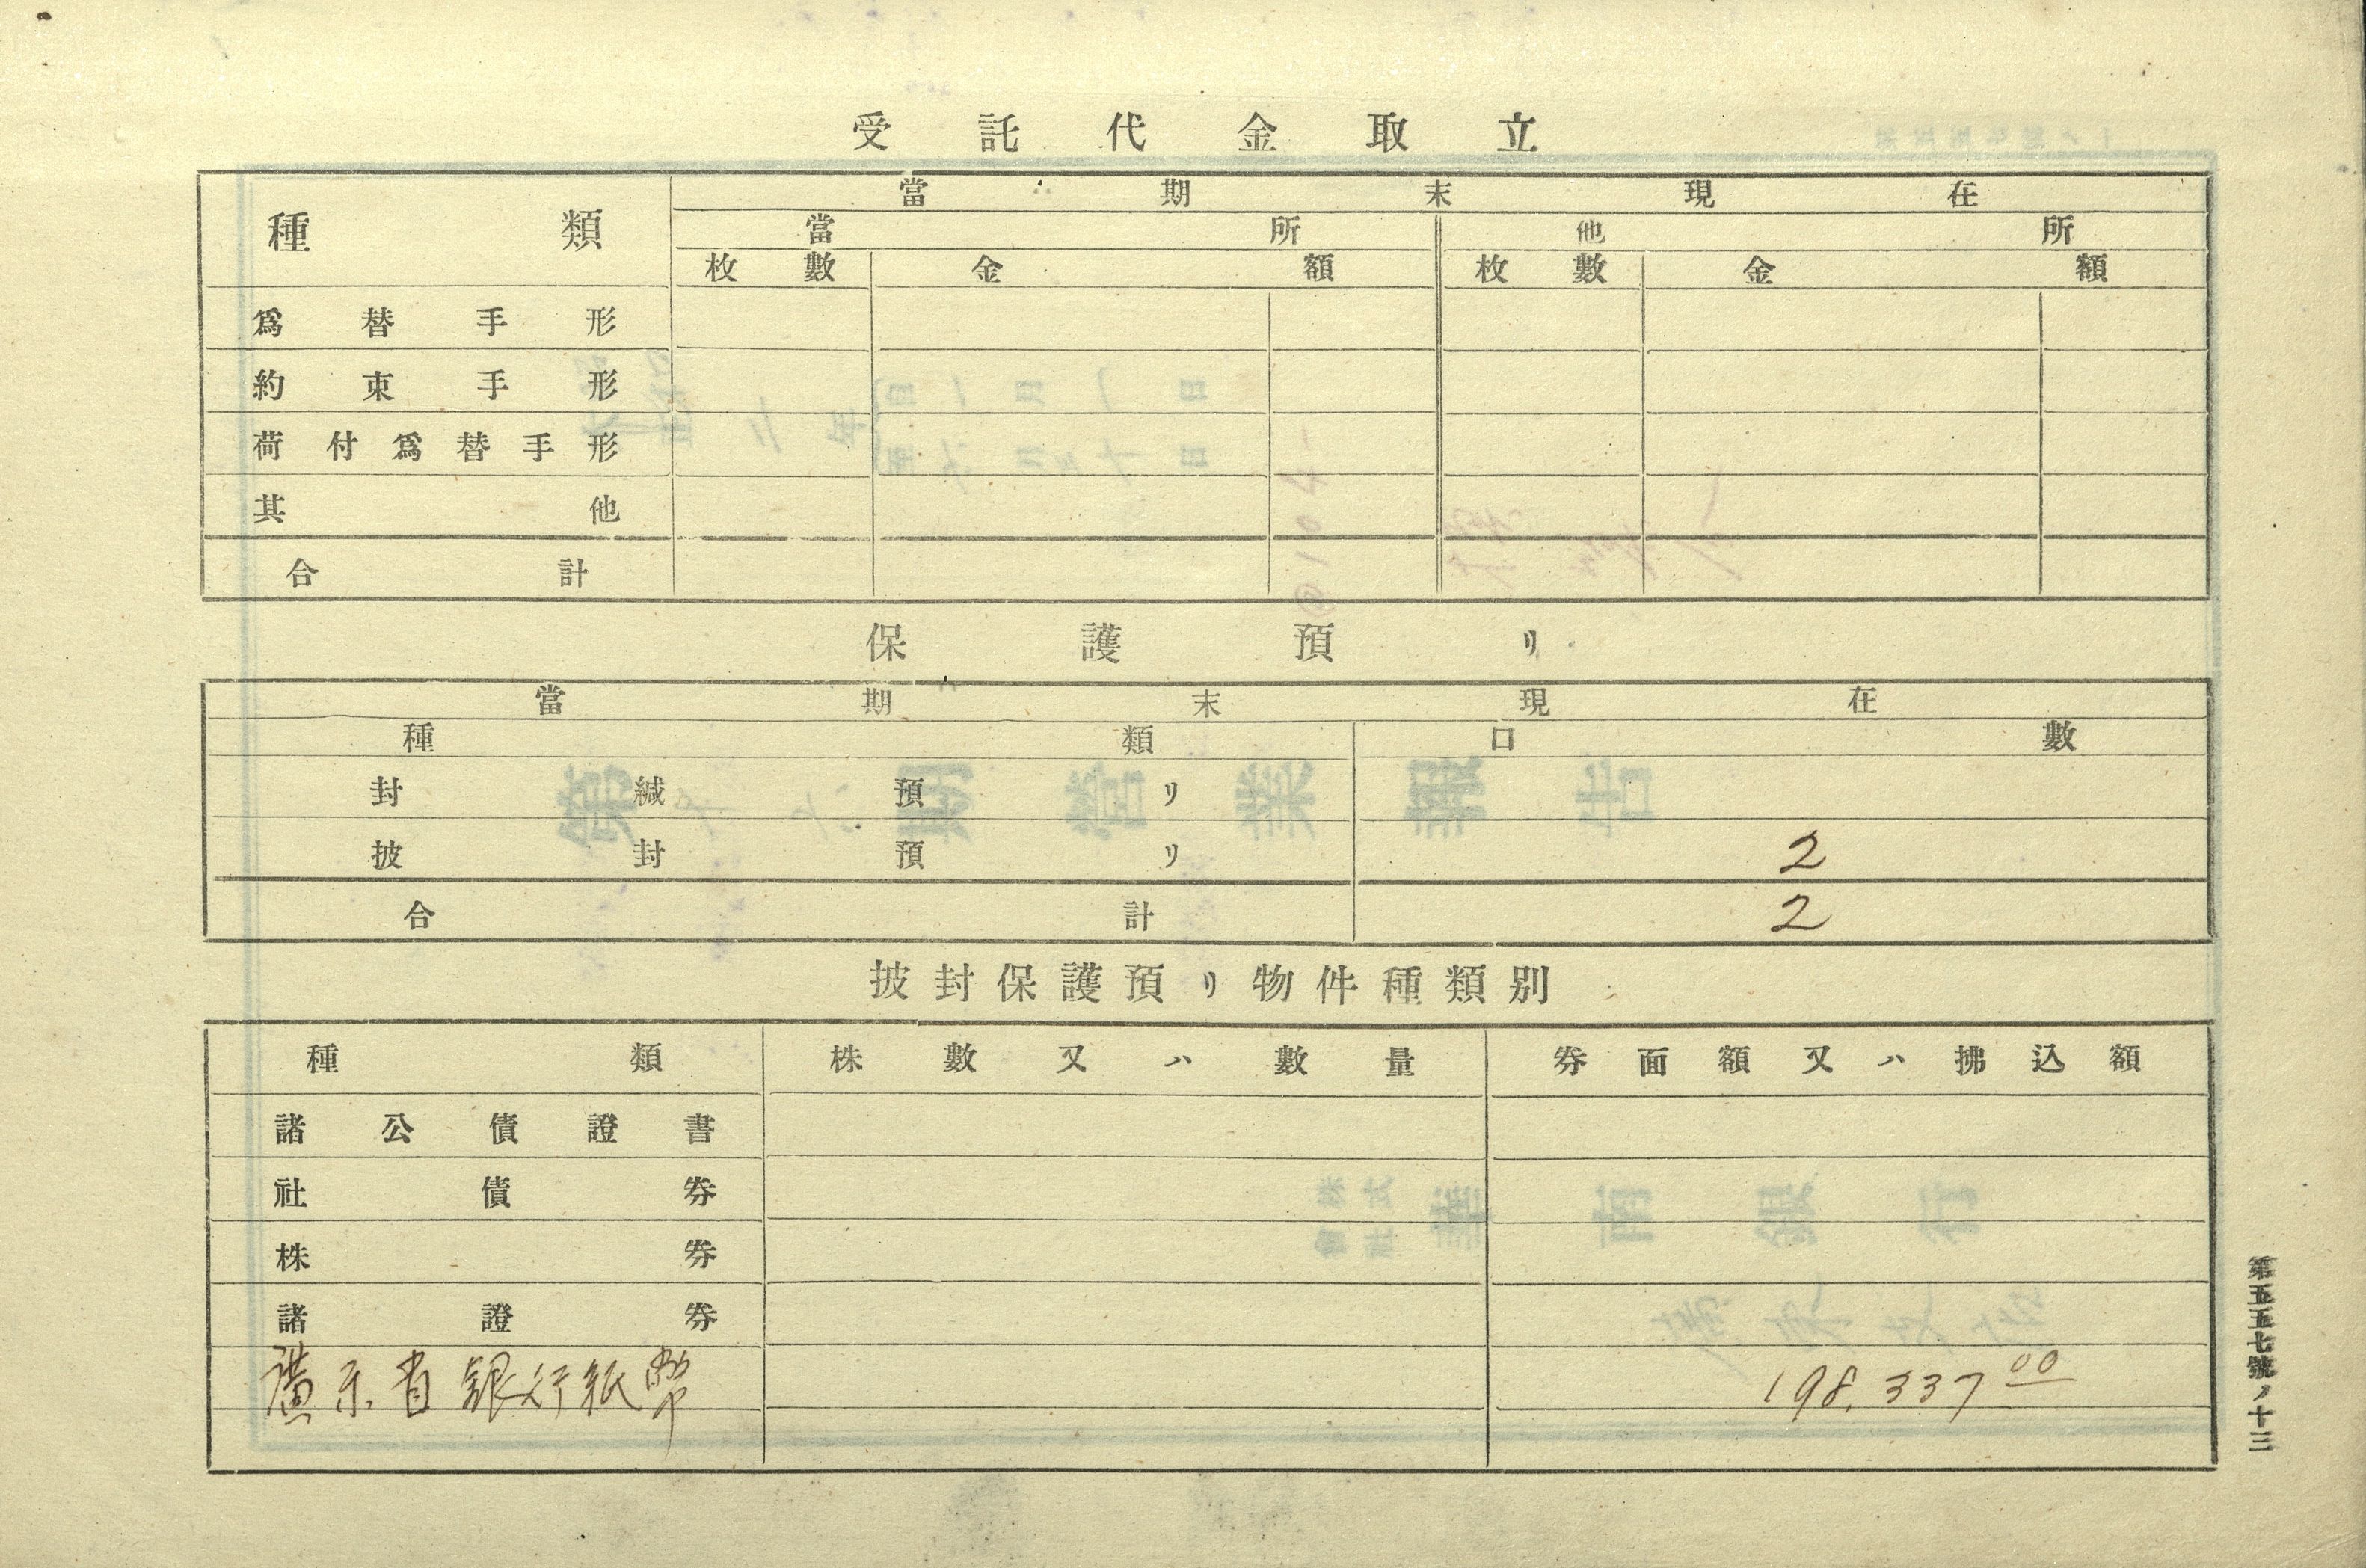 受託代金取立
種類 當期末現在
當所 他所
枚數 金額 枚數 金額
爲替手形
約束手形
荷付爲替手形
其他
合計
保護預リ
當期末現在
種類 口數
封緘預リ
披封預リ 2
合計 2
披封保護預リ物件種類別
種類 株數又ハ數量 券面額又ハ拂込額
諸公債證書
社債券
株券
諸證券
廣東省銀行紙幣 198,337 00
第五五七號ノ十三